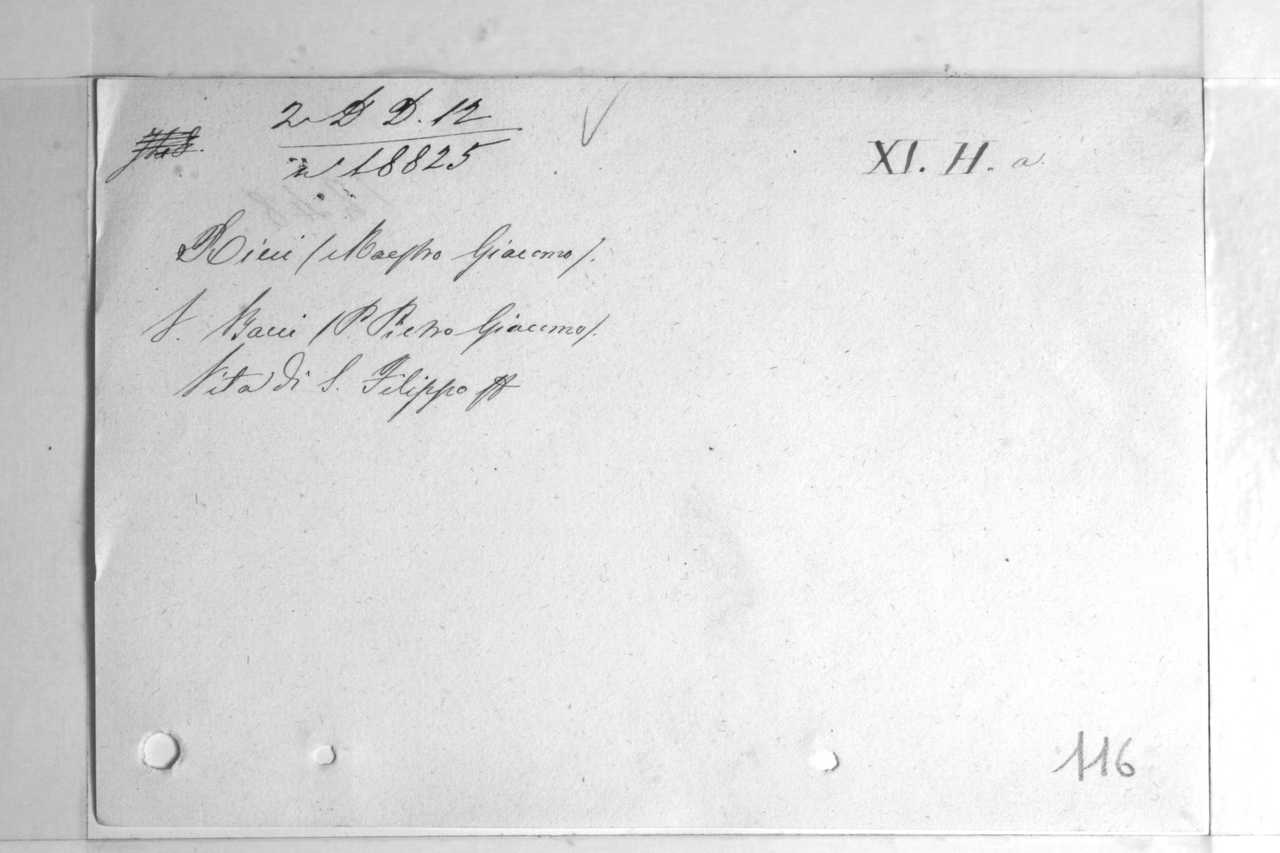 2 D D. 12
XI. H. a.
n 18825
Ricci (Maestro Giacomo).
V. Bacci (P. Pietro Giacomo).
Vita di S. Filippo
116